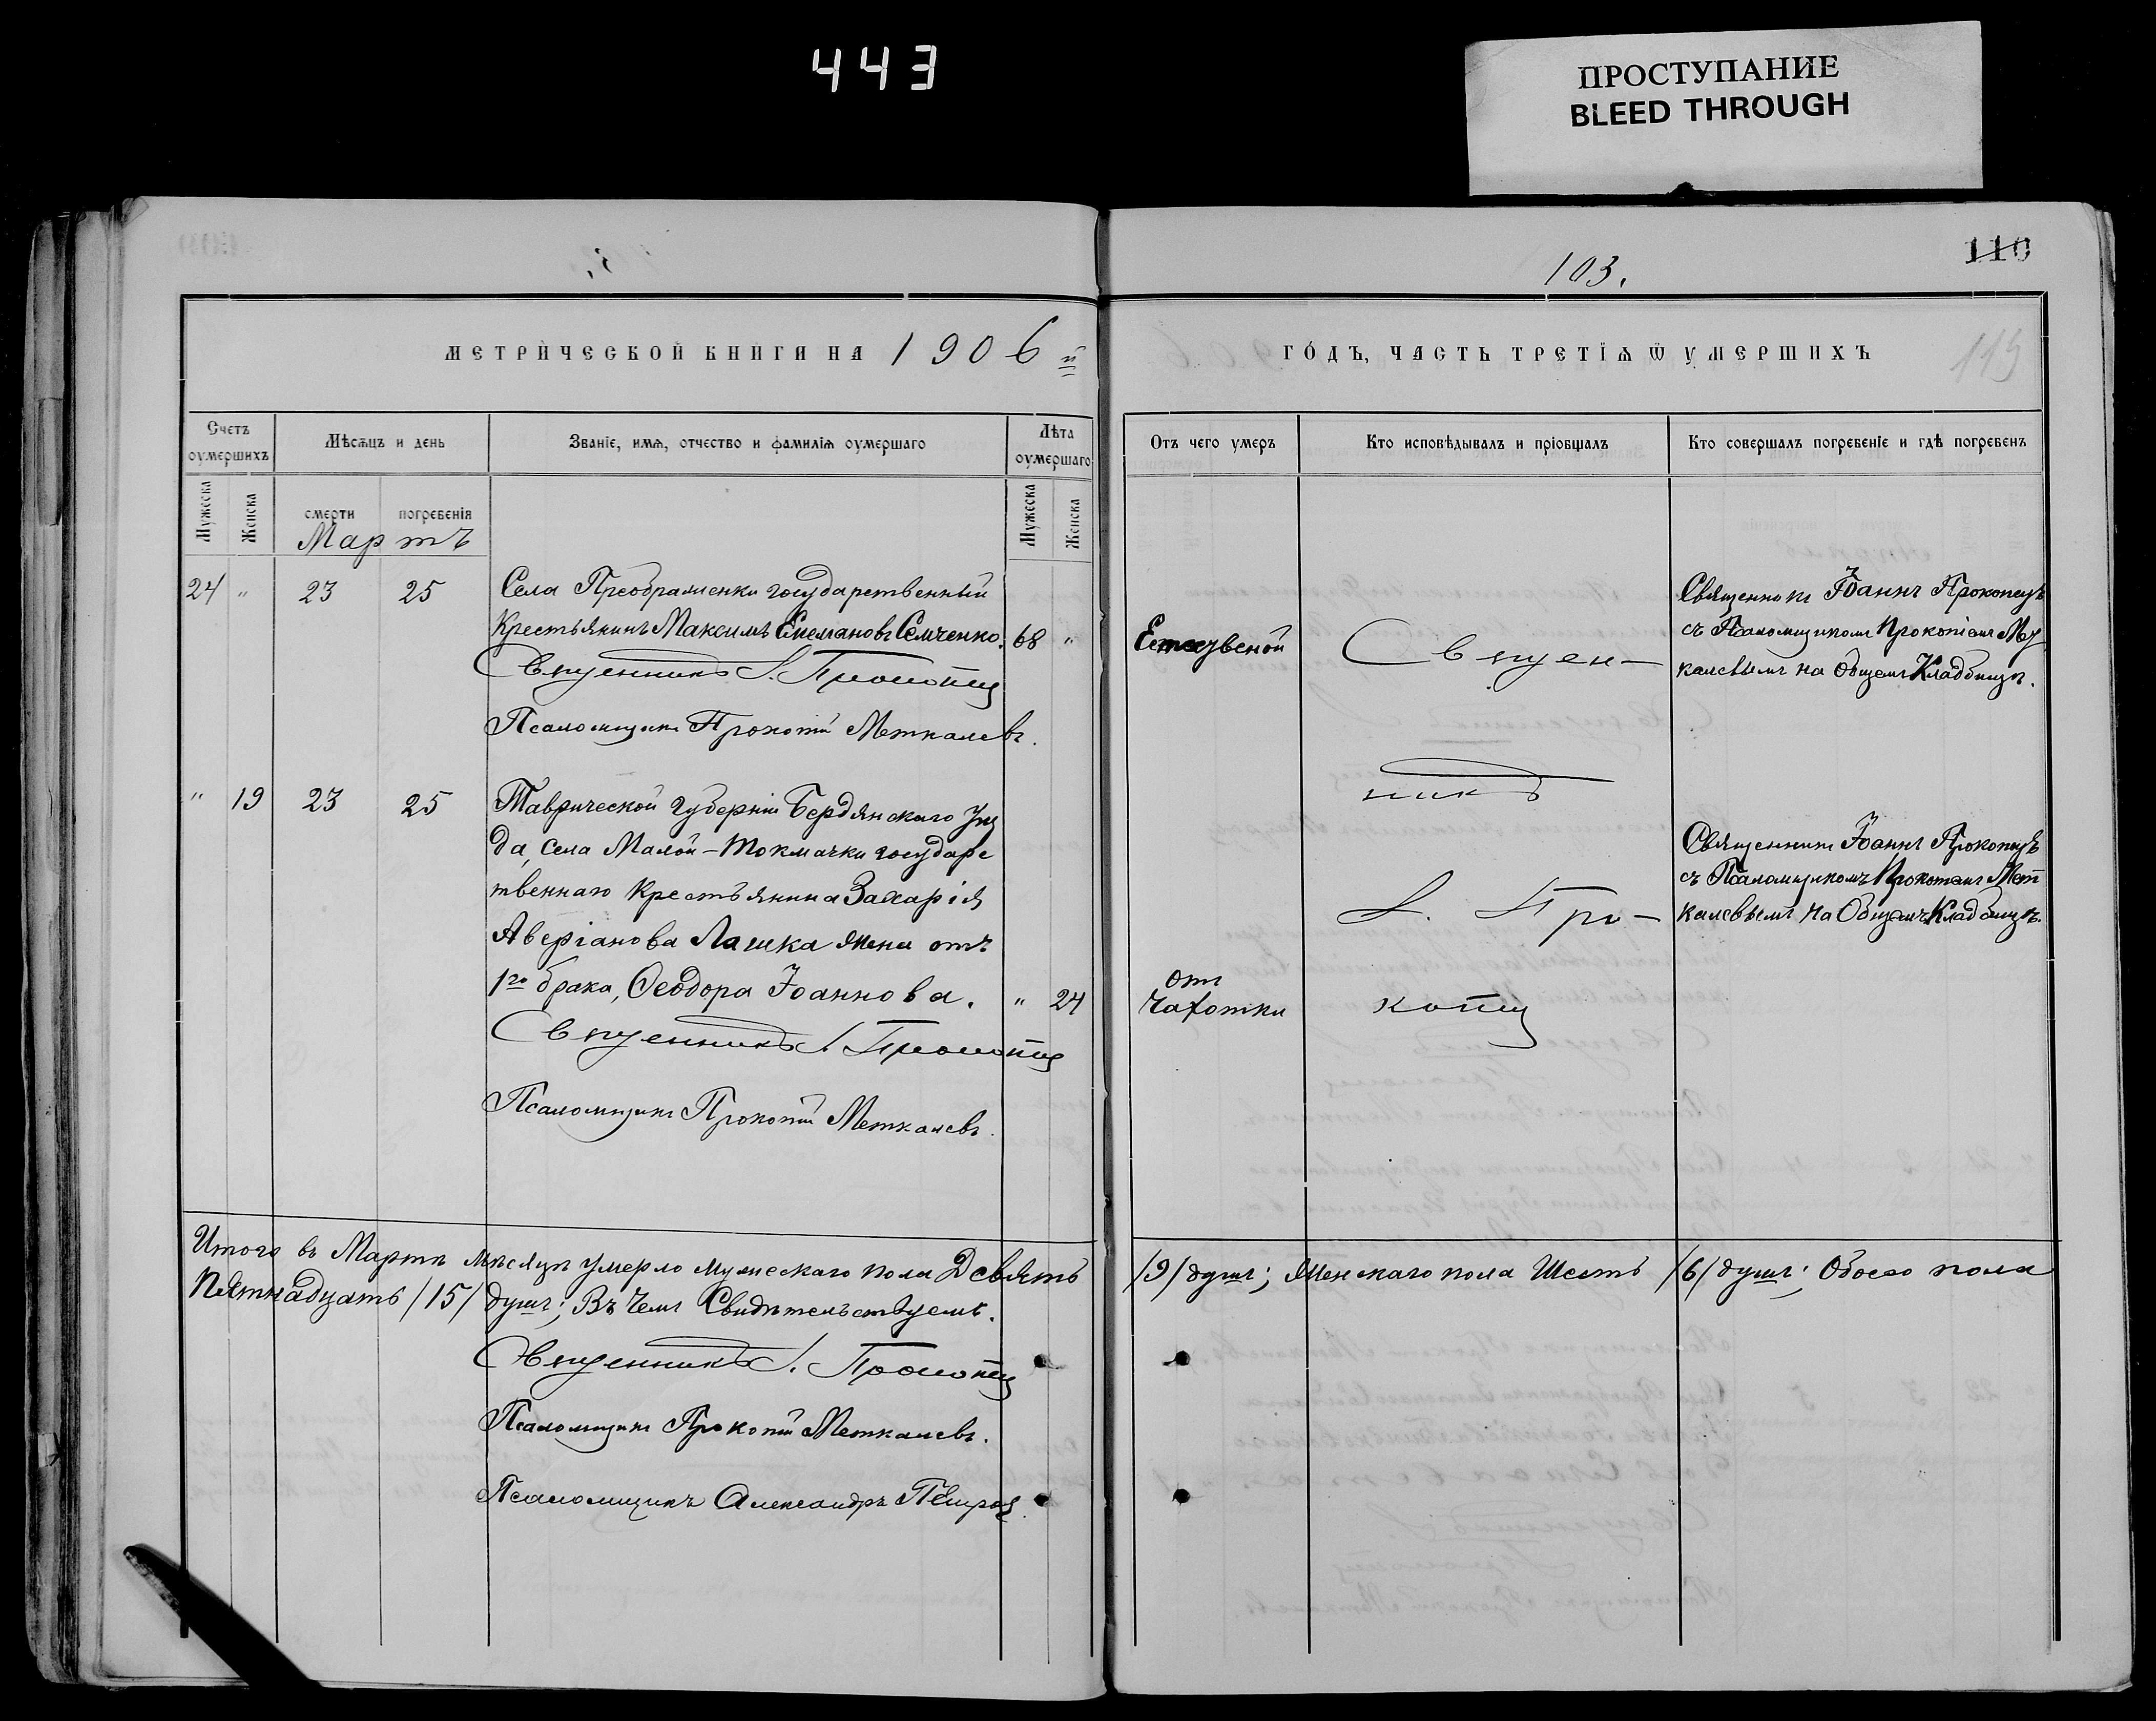 443
ПРОСТУПАНИЕ
BLEED THROUGH
103.
110
119
МЕТРИЧЕСКОЙ КНИГИ НА 1906й
ГОДЪ, ЧАСТЬ ТРЕТІѦ Ѿ УМЕРШИХЪ
Счетъ оумершихъ
Мѣсѧцъ и день
Званіе, имѧ, отчество и фамилія оумершаго
Лѣта оумершаго
Отъ чего умеръ
Кто исповѣдывалъ и пріобщалъ
Кто совершалъ погребеніе и гдѣ погребенъ
Мужеска
Женска
смерти
погребенія
Мужеска
Женска
Мартъ
24 " 23 25 Села Преображенки государственный
Крестьянинъ Максимъ Семченко. 68 "
Священникъ І. Прокопец
Псаломщикъ Прокопій Меткалевъ.
Священ-
никъ
Священникъ Іоаннъ Прокопецъ
съ Псаломщикомъ Прокопіемъ Ме
калевымъ на Общемъ Кладбищѣ.
" 19 23 25 Таврической губерніи Бердянскаго Уѣз
да, Села Малой-Токмачки государс
твеннаго Крестьянина Захарія
Аверіанова Лашка жена отъ
1го брака, Ѳеодора Іоаннова. " 24
Священникъ І. Прокопец
Псаломщикъ Прокопій Меткалевъ.
отъ
Чахотки
І. Про-
копец
Священникъ Іоаннъ Прокопецъ
съ Псаломщикомъ Прокопіемъ Мет
калевымъ на Общемъ Кладбищѣ.
Итого въ Мартѣ мѣсяцѣ умерло мужескаго пола Девять /9/ душъ; Женскаго пола Шесть /6/ душъ; Обоего пола
Пятнадцать /15/ душъ; Въ чемъ Свидѣтельствуемъ.
Священникъ І. Прокопец
Псаломщикъ Прокопій Меткалевъ.
Псаломщикъ Александръ